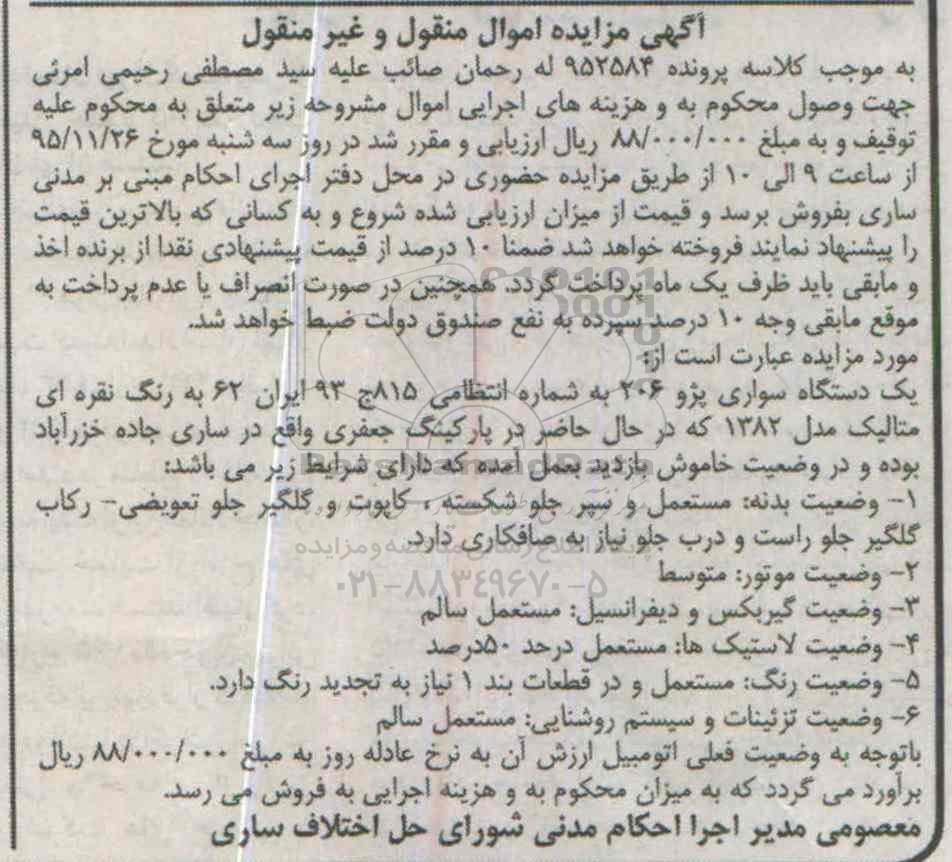 آگهی مزایده اموال منقول و غیر منقول
به موجب کلاسه پرونده ۹۵۲۵۸۴ له رحمان صائب علیه سید مصطفی رحیمی امرئی
جهت وصول محکوم به و هزینه های اجرایی اموال مشروحه زیر متعلق به محکوم علیه
توقیف و به مبلغ ۸۸/۰۰۰/۰۰۰ ریال ارزیابی و مقرر شد در روز سه شنبه مورخ ۹۵/۱۱/۲۶
از ساعت ۹ الی ۱۰ از طریق مزایده حضوری در محل دفتر اجرای احکام مبنی بر مدنی
ساری بفروش برسد و قیمت از میزان ارزیابی شده شروع و به کسانی که بالاترین قیمت
را پیشنهاد نمایند فروخته خواهد شد ضمنا ۱۰ درصد از قیمت پیشنهادی نقدا از برنده اخذ
و مابقی باید ظرف یک ماه پرداخت گردد. همچنین در صورت انصراف یا عدم پرداخت به
موقع مابقی وجه ۱۰ درصد سپرده به نفع صندوق دولت ضبط خواهد شد.
مورد مزایده عبارت است از:
یک دستگاه سواری پژو ۲۰۶ به شماره انتظامی ۸۱۵ج ۹۳ ایران ۶۲ به رنگ نقره ای
متالیک مدل ۱۳۸۲ که در حال حاضر در پارکینگ جعفری واقع در ساری جاده خزرآباد
بوده و در وضعیت خاموش بازدید بعمل آمده که دارای شرایط زیر می باشد:
۱- وضعیت بدنه: مستعمل و سپر جلو شکسته ، کاپوت و گلگیر جلو تعویضی- رکاب
گلگیر جلو راست و درب جلو نیاز به صافکاری دارد.
۲- وضعیت موتور: متوسط
۰۲۱-۸۸۳۴۹۶۷۰-۵
۳- وضعیت گیربکس و دیفرانسیل: مستعمل سالم
۴- وضعیت لاستیک ها: مستعمل درحد ۵۰درصد
۵- وضعیت رنگ: مستعمل و در قطعات بند ۱ نیاز به تجدید رنگ دارد.
۶- وضعیت تزئینات و سیستم روشنایی: مستعمل سالم
باتوجه به وضعیت فعلی اتومبیل ارزش آن به نرخ عادله روز به مبلغ ۸۸/۰۰۰/۰۰۰ ریال
برآورد می گردد که به میزان محکوم به و هزینه اجرایی به فروش می رسد.
معصومی مدیر اجرا احکام مدنی شورای حل اختلاف ساری